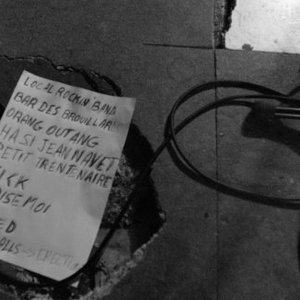 LOCAL ROCKIN BAND
BAR DES BROUILLAR
ORANG OUTANG
HASI JEAN NAVET
PETIT TRENTENAIRE
ICK
ISE MOI
ED
ALLS